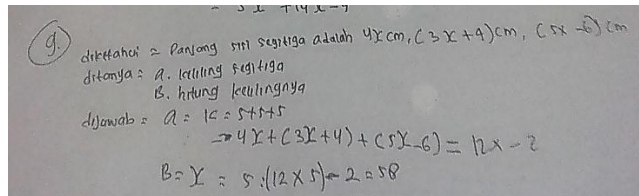 9. diketahui = Panjang sisi segitiga adalah 4x cm, (3x+4) cm, (5x-6) cm
ditanya = a. keliling segitiga
B. hitung kelilingnya
dijawab = a = K = s+s+s
→ 4x+(3x+4)+(5x-6) = 12x-2
B = x = 5 :(12x5)-2 = 58